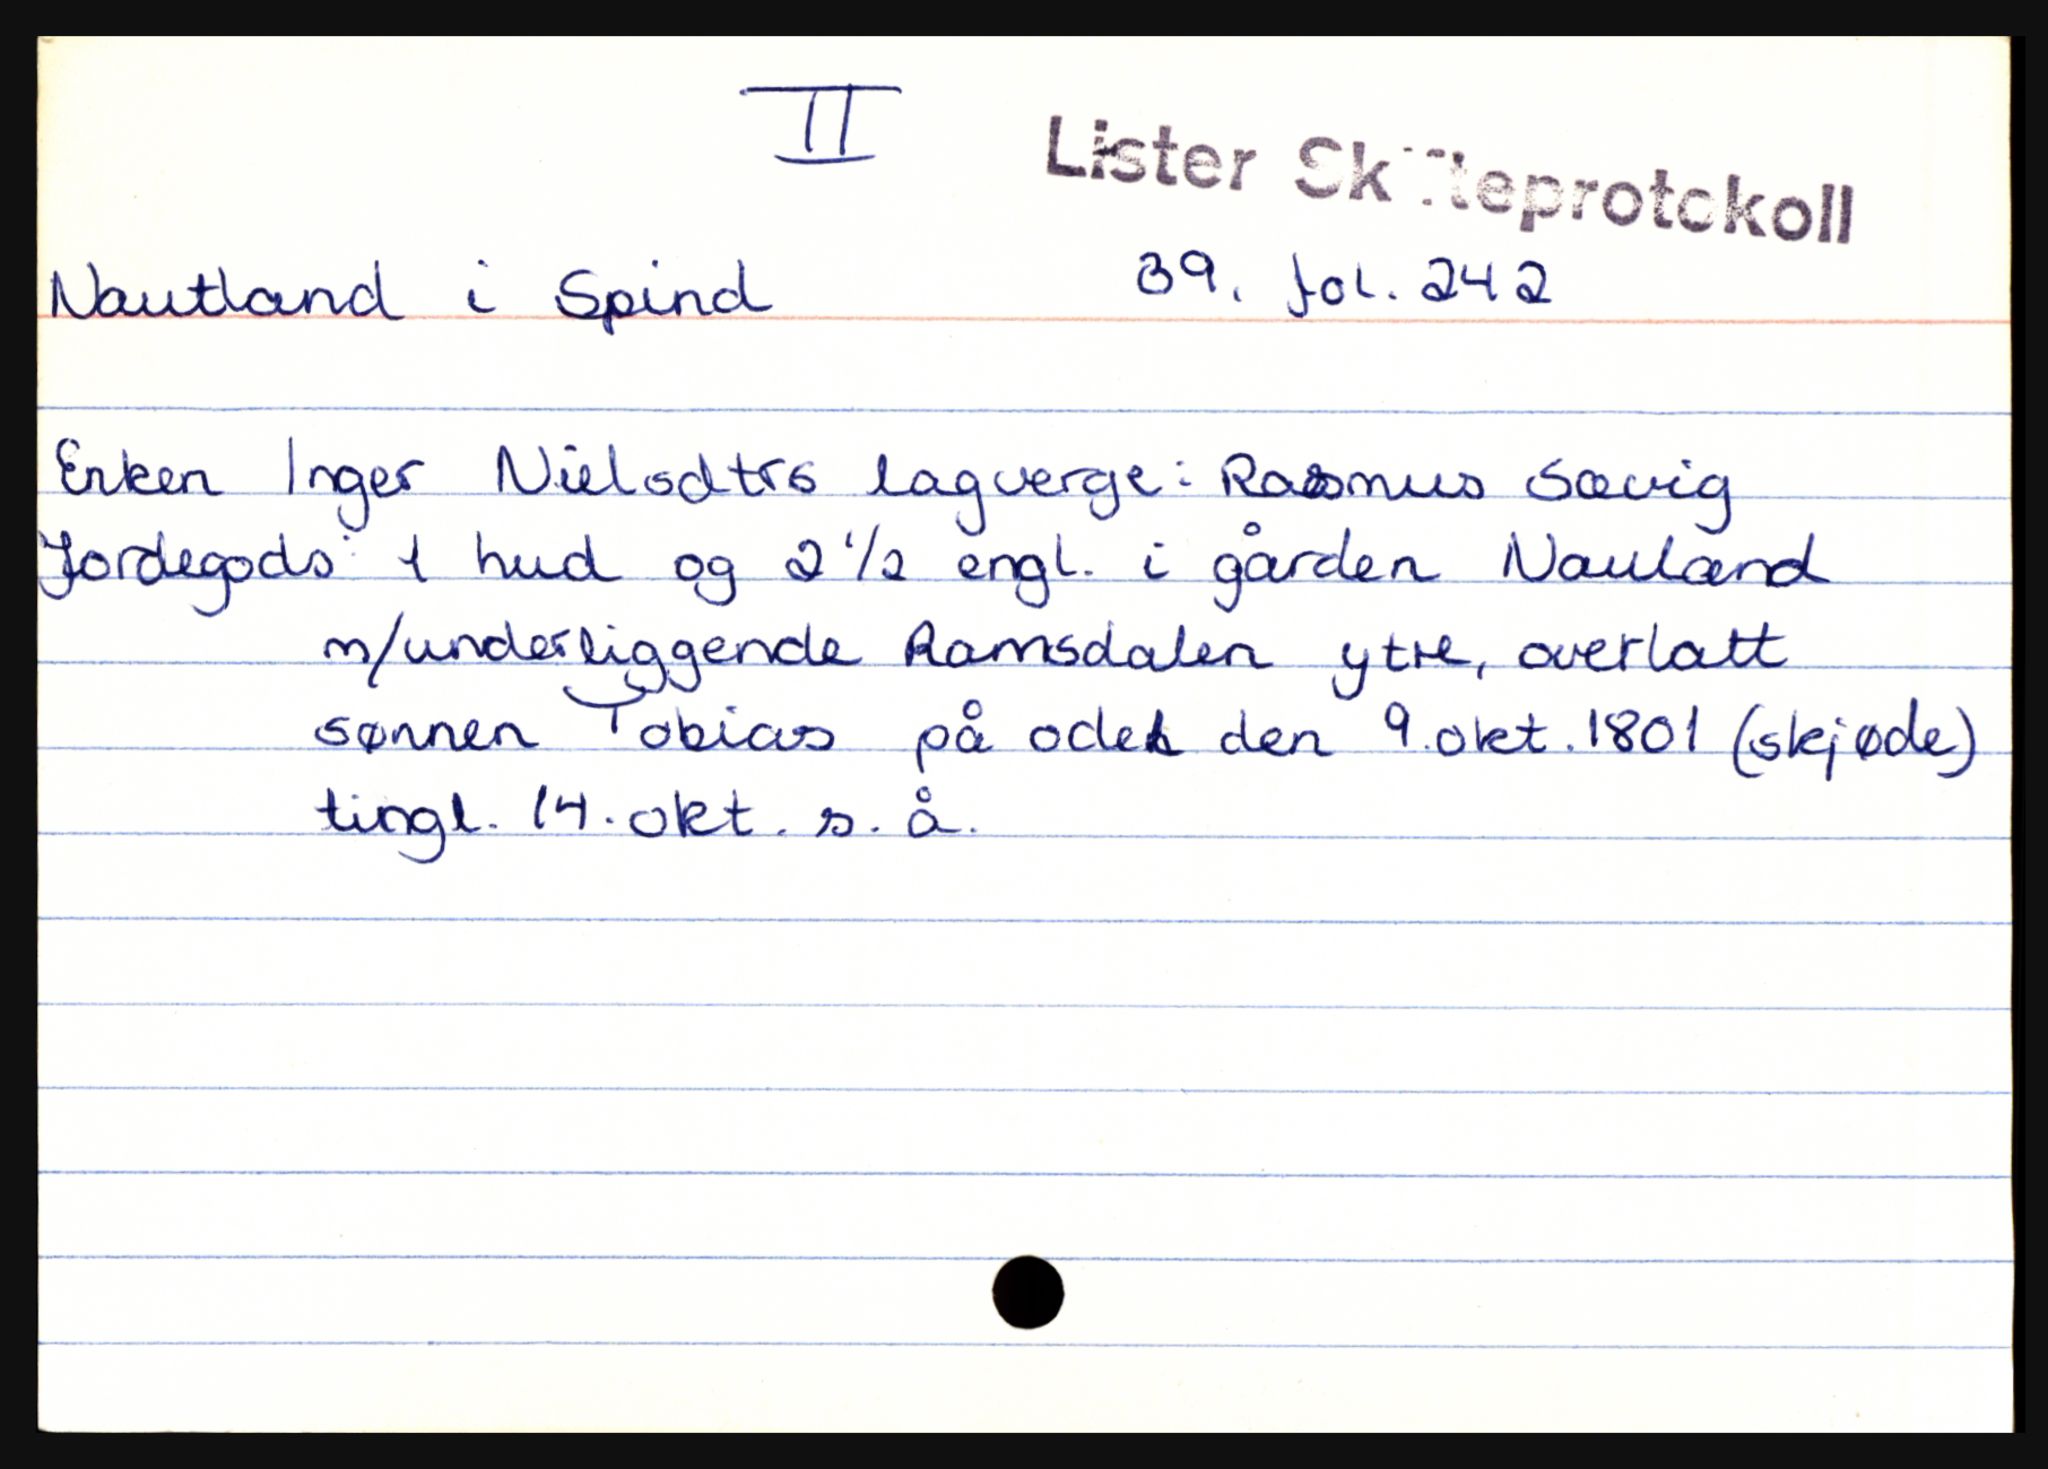 II
Lister Skifteprotokoll
Nautland i Spind 39. fol. 242
Enken Inger Nielsdtrs lagverge: Rasmus Sævig
Jordegods: 1 hud og 2 1/2 engl. i gården Nauland
m/underliggende Ramsdalen ytre, overlatt
sønnen Tobias på odel den 9. okt. 1801 (skjøde)
tingl. 14. okt. s. å.